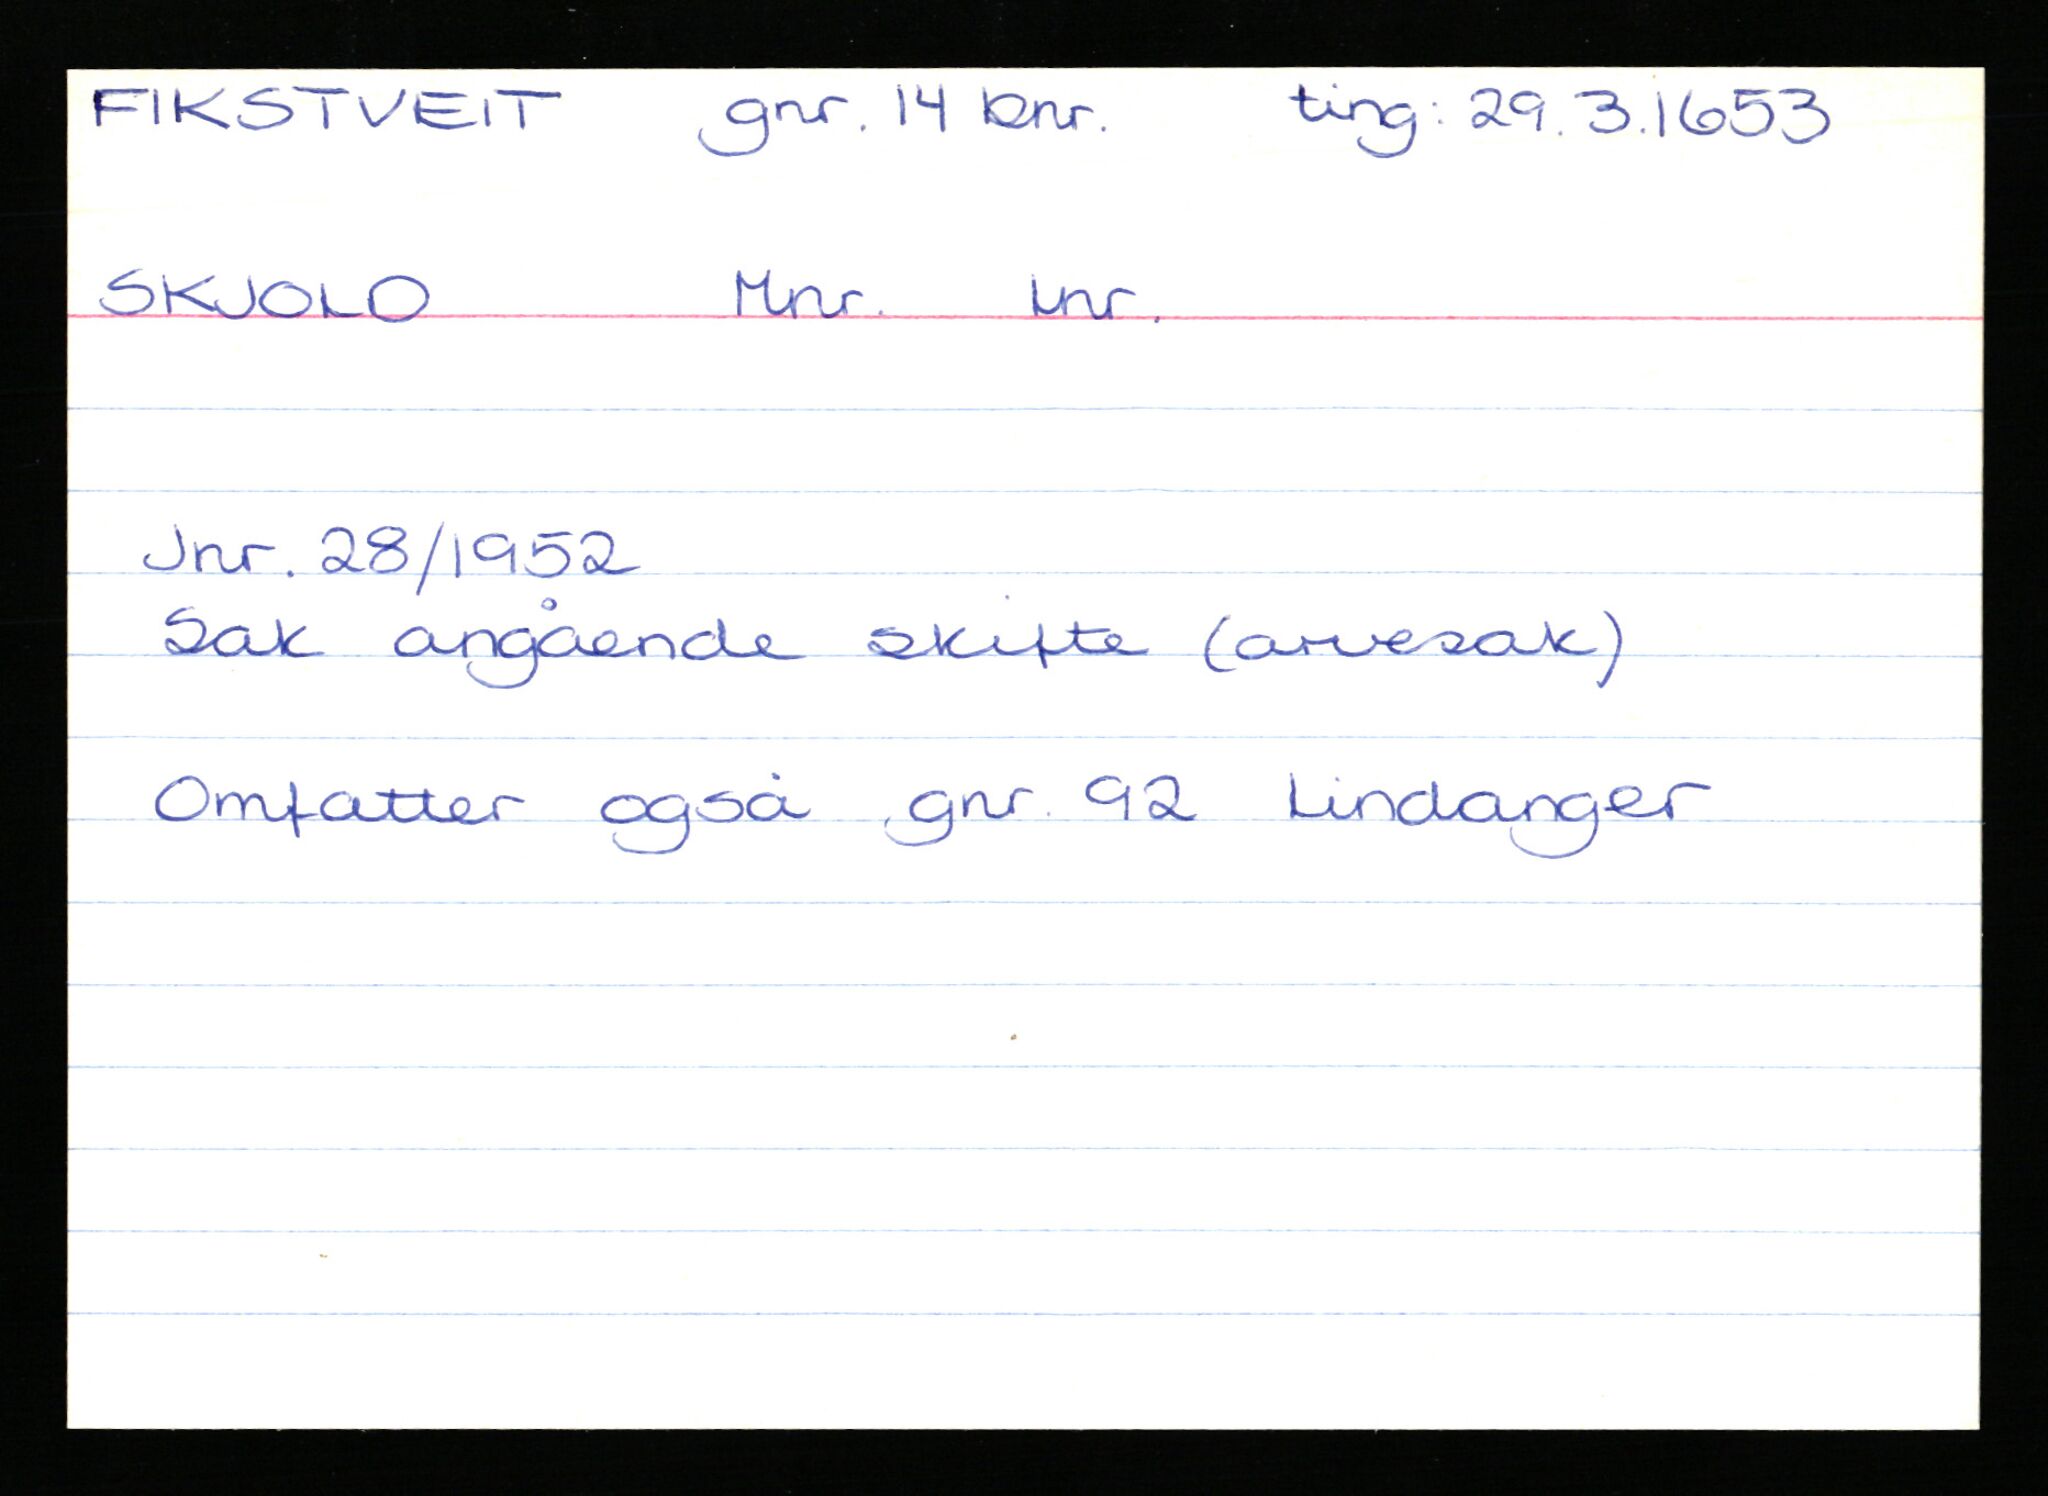 FIKSTVEIT gnr. 14 bnr. ting: 29.3.1653
SKJOLD Mnr. Lnr.
Jnr. 28/1952
Sak angående skifte (arvesak)
Omfatter også gnr. 92 Lindanger